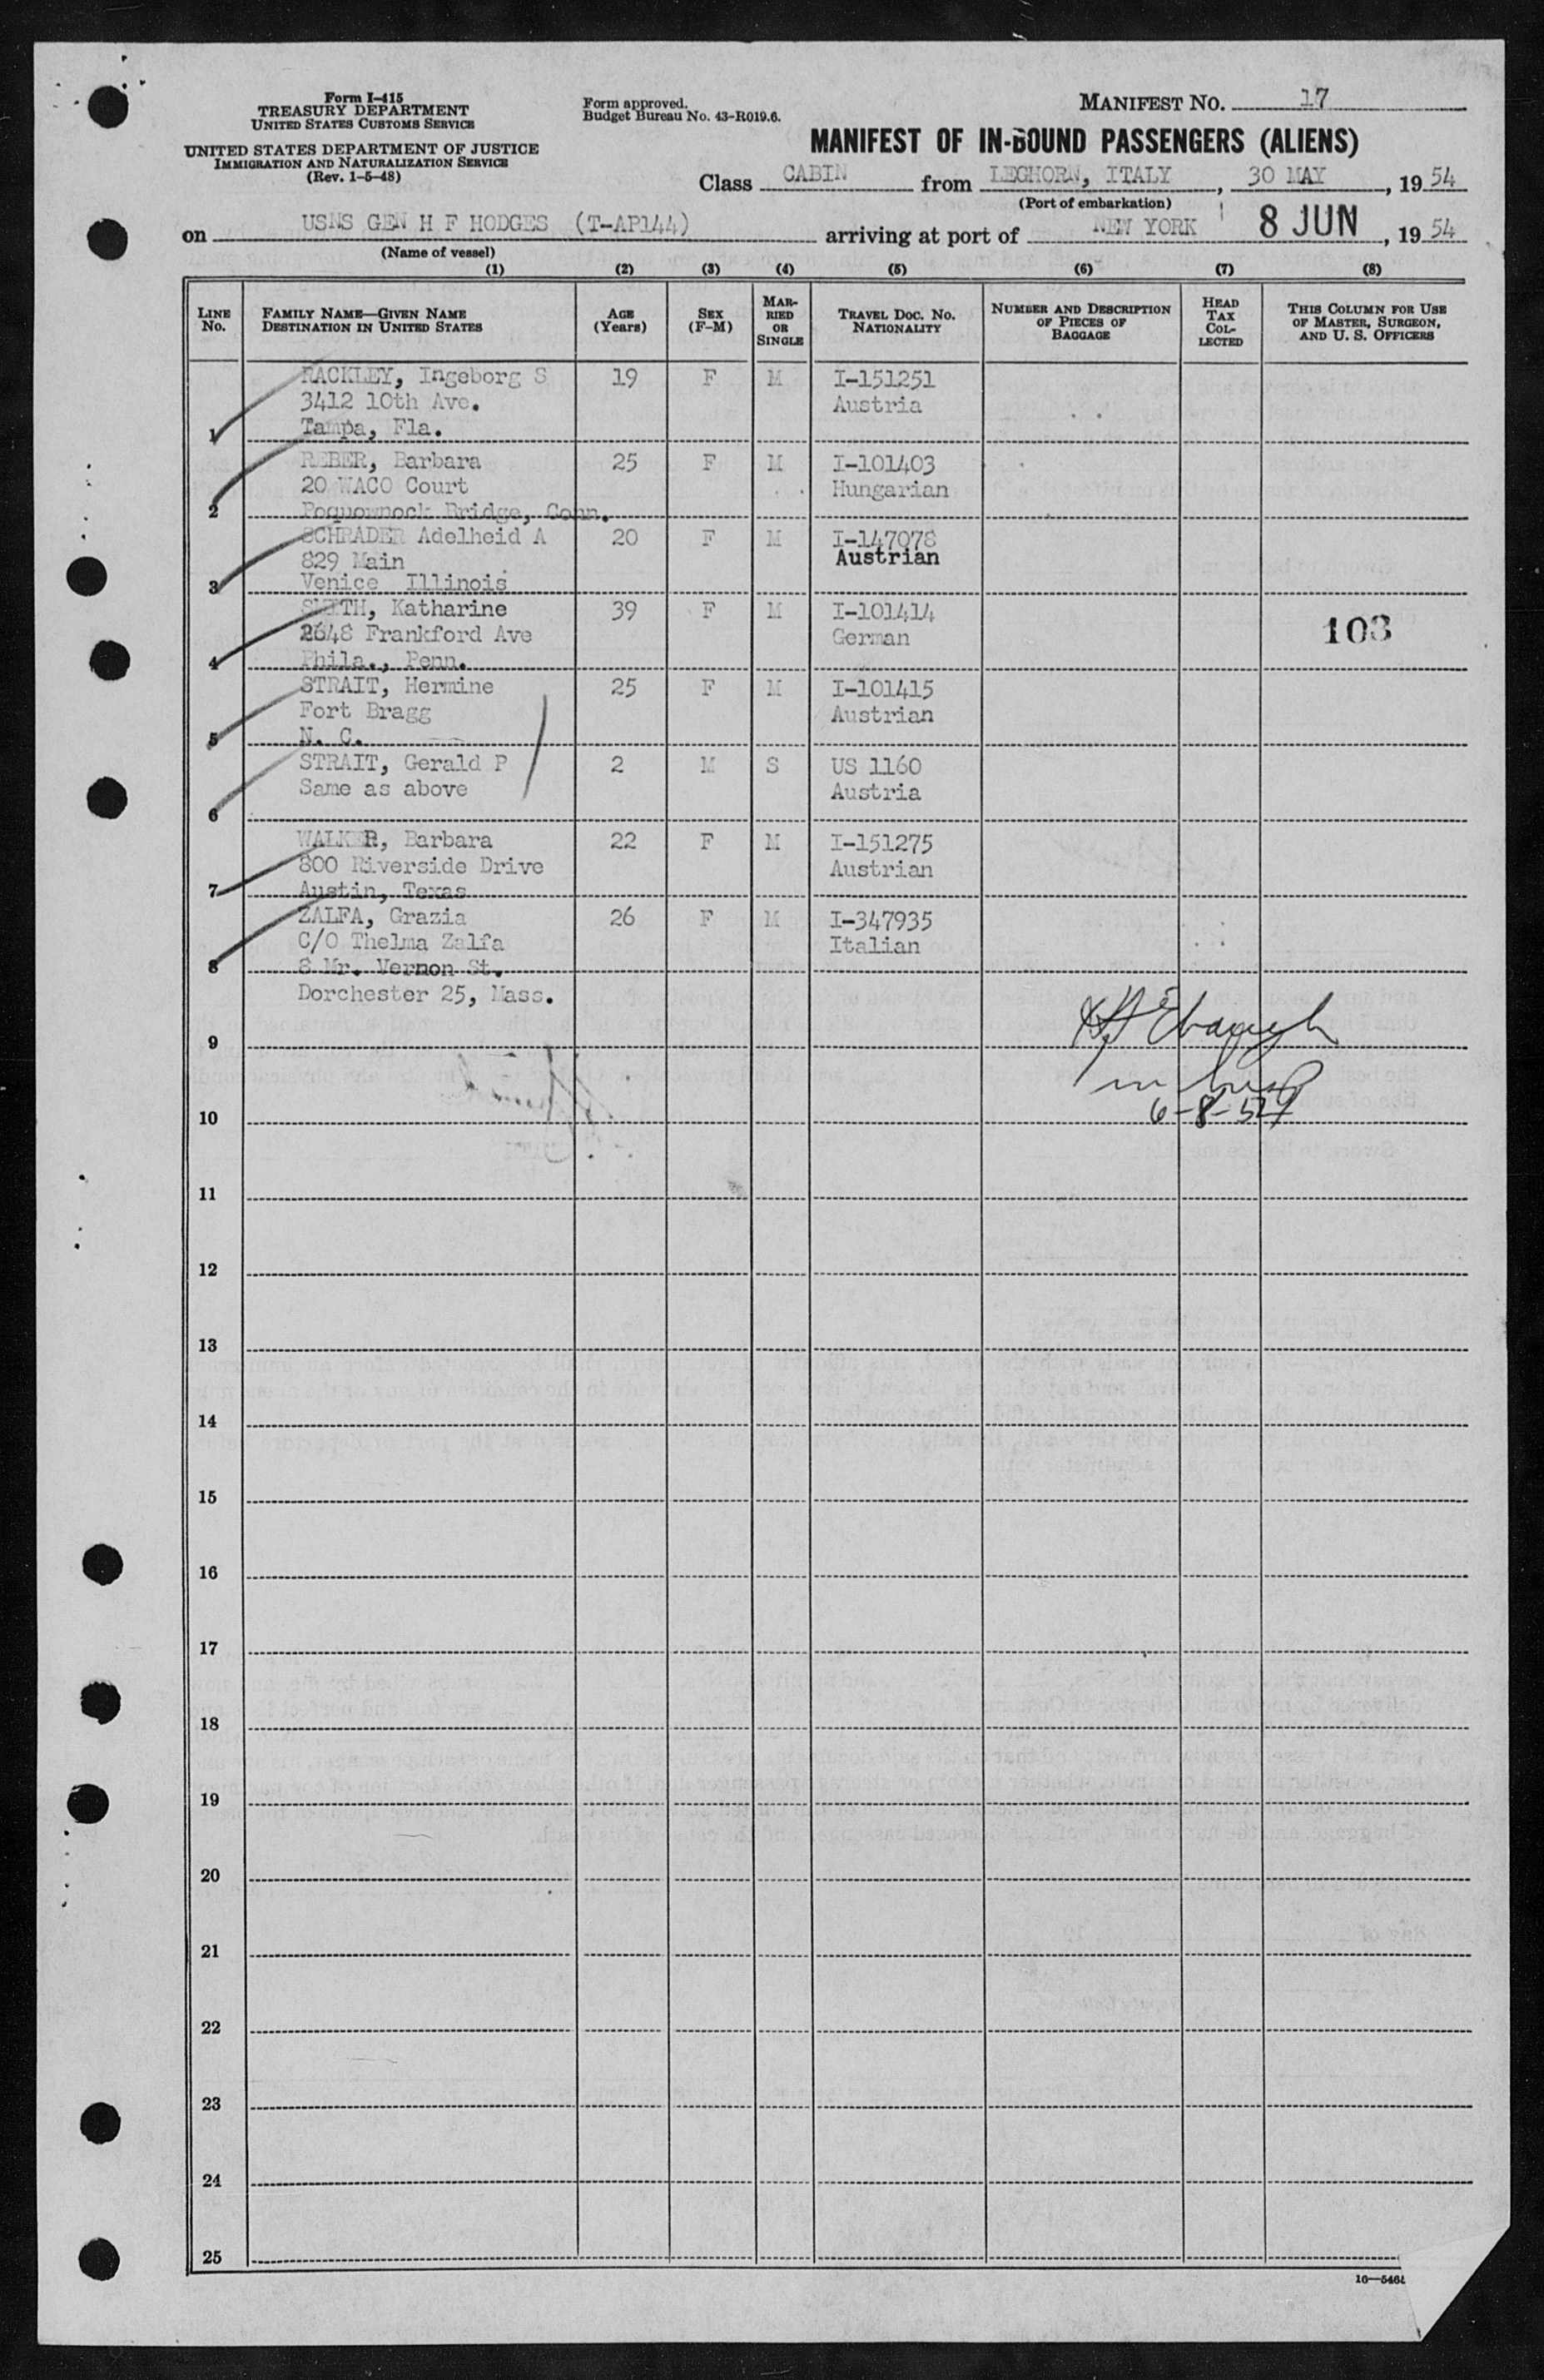 Form I-415
TREASURY DEPARTMENT
UNITED STATES CUSTOMS SERVICE
UNITED STATES DEPARTMENT OF JUSTICE
IMMIGRATION AND NATURALIZATION SERVICE
(Rev. 1-5-48)
Form approved.
Budget Bureau No. 43-R019.6.
MANIFEST NO. 17
MANIFEST OF IN-BOUND PASSENGERS (ALIENS)
Class CABIN from LEGHORN, ITALY, 30 MAY, 1954
(Port of embarkation)
on USNS GEN H F HODGES (T-AP144) arriving at port of NEW YORK 8 JUN, 1954
(Name of vessel)
(1) (2) (3) (4) (5) (6) (7) (8)
LINE No. FAMILY NAME—GIVEN NAME DESTINATION IN UNITED STATES AGE (Years) SEX (F-M) MARRIED OR SINGLE TRAVEL DOC. NO. NATIONALITY NUMBER AND DESCRIPTION OF PIECES OF BAGGAGE HEAD TAX COLLECTED THIS COLUMN FOR USE OF MASTER, SURGEON, AND U. S. OFFICERS
RACKLEY, Ingeborg S 19 F M I-151251
3412 10th Ave. Austria
1 Tampa, Fla.
REBER, Barbara 25 F M I-101403
20 WACO Court Hungarian
2 Poquonnock Bridge, Conn.
SCHRADER Adelheid A 20 F M I-147078
829 Main Austrian
3 Venice Illinois
SMITH, Katharine 39 F M I-101414
2648 Frankford Ave German 103
4 Phila., Penn.
STRAIT, Hermine 25 F M I-101415
Fort Bragg Austrian
5 N. C.
STRAIT, Gerald P 2 M S US 1160
Same as above Austria
6
WALKER, Barbara 22 F M I-151275
800 Riverside Drive Austrian
7 Austin, Texas
ZALFA, Grazia 26 F M I-347935
C/O Thelma Zalfa Italian
8 8 Mr. Vernon St.
Dorchester 25, Mass.
9
10 6-8-54
11
12
13
14
15
16
17
18
19
20
21
22
23
24
25